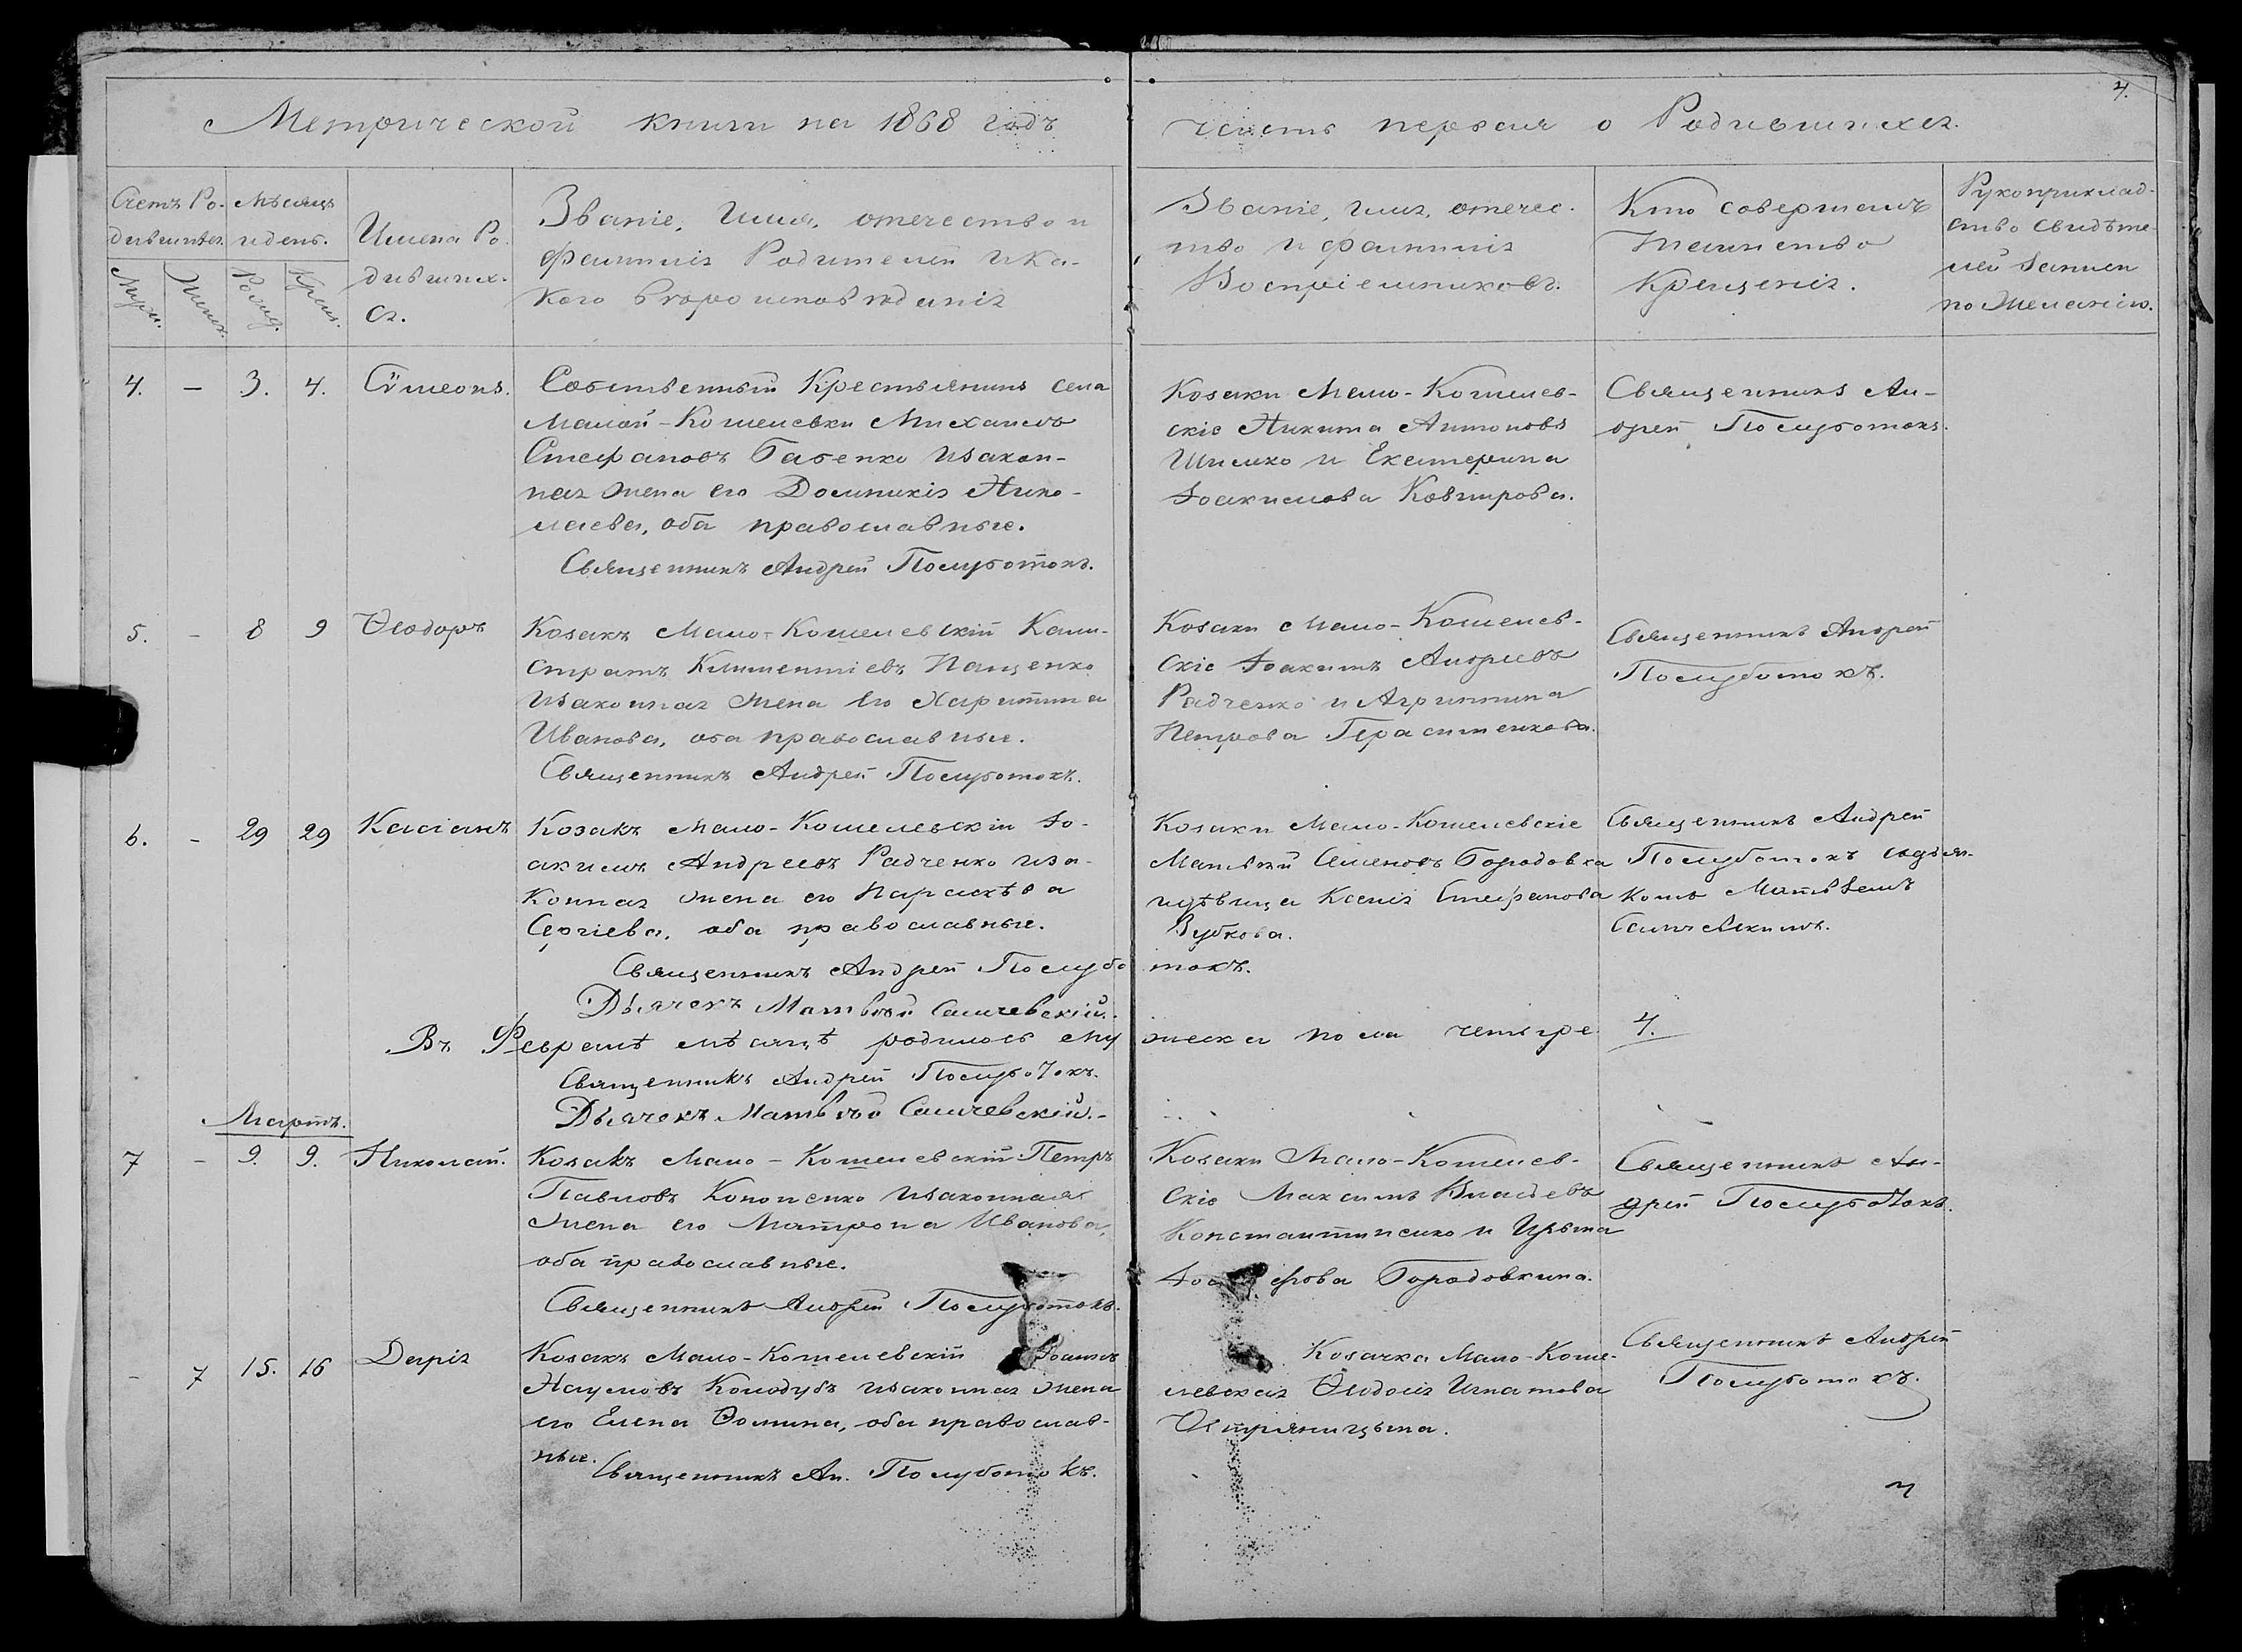 4.
Метрической книги на 1868 годъ
часть первая о Родившихся.
Счетъ Ро-
дившихся.
Мѣсяцъ
и день.
Имена Ро-
дивших-
ся.
Званіе, Имя, отечество и
фамилія Родителей и ка-
кого вѣроисповѣданія
Званіе, имя, отечес-
тво и фамилія
Воспріемниковъ.
Кто совершалъ
таинство
Крещенія.
Рукоприклад-
ство свидѣте-
лей записи
по желанію.
Муж.
Женск.
Рожд.
Крещ.
4. - 3. 4. Сѵмеонъ.
Собственный Крестьянинъ села
Малой-Кошелевки Михаилъ
Стефановъ Бабенко и закон-
ная жена его Домникія Нико-
лаева, оба православные.
Священникъ Андрей Полуботокъ.
Козаки Мало-Кошелев-
скіе Никита Антоновъ
Шишко и Екатерина
Іоакимова
Священникъ Ан-
дрей Полуботокъ.
5. - 8 9 Ѳеодоръ
Козакъ Мало-Кошелевскій Кали-
стратъ Климентіевъ Пащенко
и законная жена его Харитина
Иванова, оба православные.
Священникъ Андрей Полуботокъ.
Козаки Мало-Кошелев-
скіе Іоакимъ Андреевъ
Радченко и Агриппина
Петрова Герасименкова.
Священникъ Андрей
Полуботокъ.
6. - 29 29 Касіанъ
Козакъ Мало-Кошелевскій Іо-
акимъ Андреевъ Радченко и за-
конная жена его Параскѣва
Сергіева, оба православные.
Священникъ Андрей Полуботокъ.
Дьячекъ Матвѣй Саличевскій.
Козаки Мало-Кошелевскіе
Матвѣй Семеновъ Бородовка
и дѣвица Ксенія Стефанова
Зубкова.
Священникъ Андрей
Полуботокъ съ дьяч-
комъ Матвѣемъ
Саличевскимъ.
Въ Февралѣ мѣсяцѣ родилось мужеска пола четыре 4.
Священникъ Андрей Полуботокъ.
Дьячекъ Матвѣй Саличевскій.-
Мартъ.
7 - 9. 9. Николай.
Козакъ Мало-Кошелевскій Петръ
Павловъ Кононенко и законная
жена его Матрона Иванова,
оба православные.
Священникъ Андрей Полуботокъ.
Козаки Мало-Кошелев-
скіе Максимъ Власіевъ
Константиненко и
Бородовкина.
Священникъ Ан-
дрей Полуботокъ.
- 7 15. 16 Дарія
Козакъ Мало-Кошелевскій Іоаннъ
Наумовъ Колодубъ и законная жена
его Елена Ѳомина, оба православ-
ные.
Священникъ Ан. Полуботокъ.
Козачка Мало-Коше-
левская Ѳеодосія Игнатова
Священникъ Андрей
Полуботокъ.